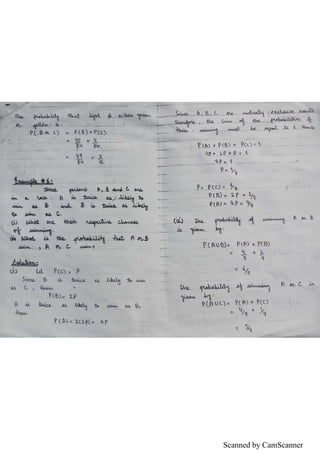 The probability that light is either green
or yellow is:
P(G or C) = P(B)+P(C)
= 45/84 + 4/84
= 49/84 = 7/12
Example # 6:
Three persons A, B and C are
in a race. A is twice as likely to
win as B and B is twice as likely
to win as C.
(i) What are their respective chances
of winning.
(ii) What is the probability that A or B
win, A or C win.
Solution:
(i) Let P(C) = P
Since B is twice as likely to win
as C, then
P(B) = 2P
A is twice as likely to win as B,
then
P(A) = 2(2P) = 4P
Since A, B, C are mutually exclusive events
therefore, the sum of the probabilities of
their winning must be equal to 1. Hence
P(A) + P(B) + P(C) = 1
4P + 2P + P = 1
P = P(C) =
P(B) = 2P =
P(A) = 4P =
(ii) The probability of winning A or B
is given by:
P(AUB) = P(A) + P(B)
The probability of winning A or C is
given by:
P(AUC) = P(A) + P(C)
Scanned by CamScanner